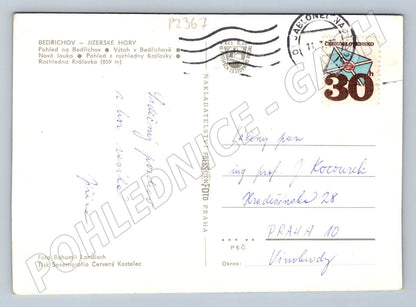 P2367
BEDŘICHOV — JIZERSKÉ HORY
Pohled na Bedřichov • Výtok v Bedřichově
Nová louka • Pohled z rozhledny Královky
Rozhledna Královka (859 m)
JABLONEC N. N.
ČESKOSLOVENSKO
30h
NAKLADATELSTVÍ PRESSFOTO PRAHA
Srdečný pozdrav
z hor
Vážený pan
ing prof J Kocourek
Hradešínská 28
PRAHA 10
PSČ
Okres:
Vinohrady
Foto Bohumil Landisch
Tisk Severografia Červený Kostelec
POHLEDNICE - GASH